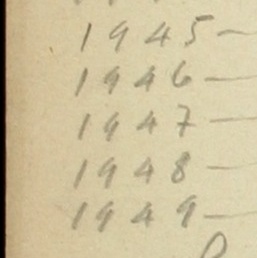 1945 —
1946 —
1947 —
1948 —
1949 —